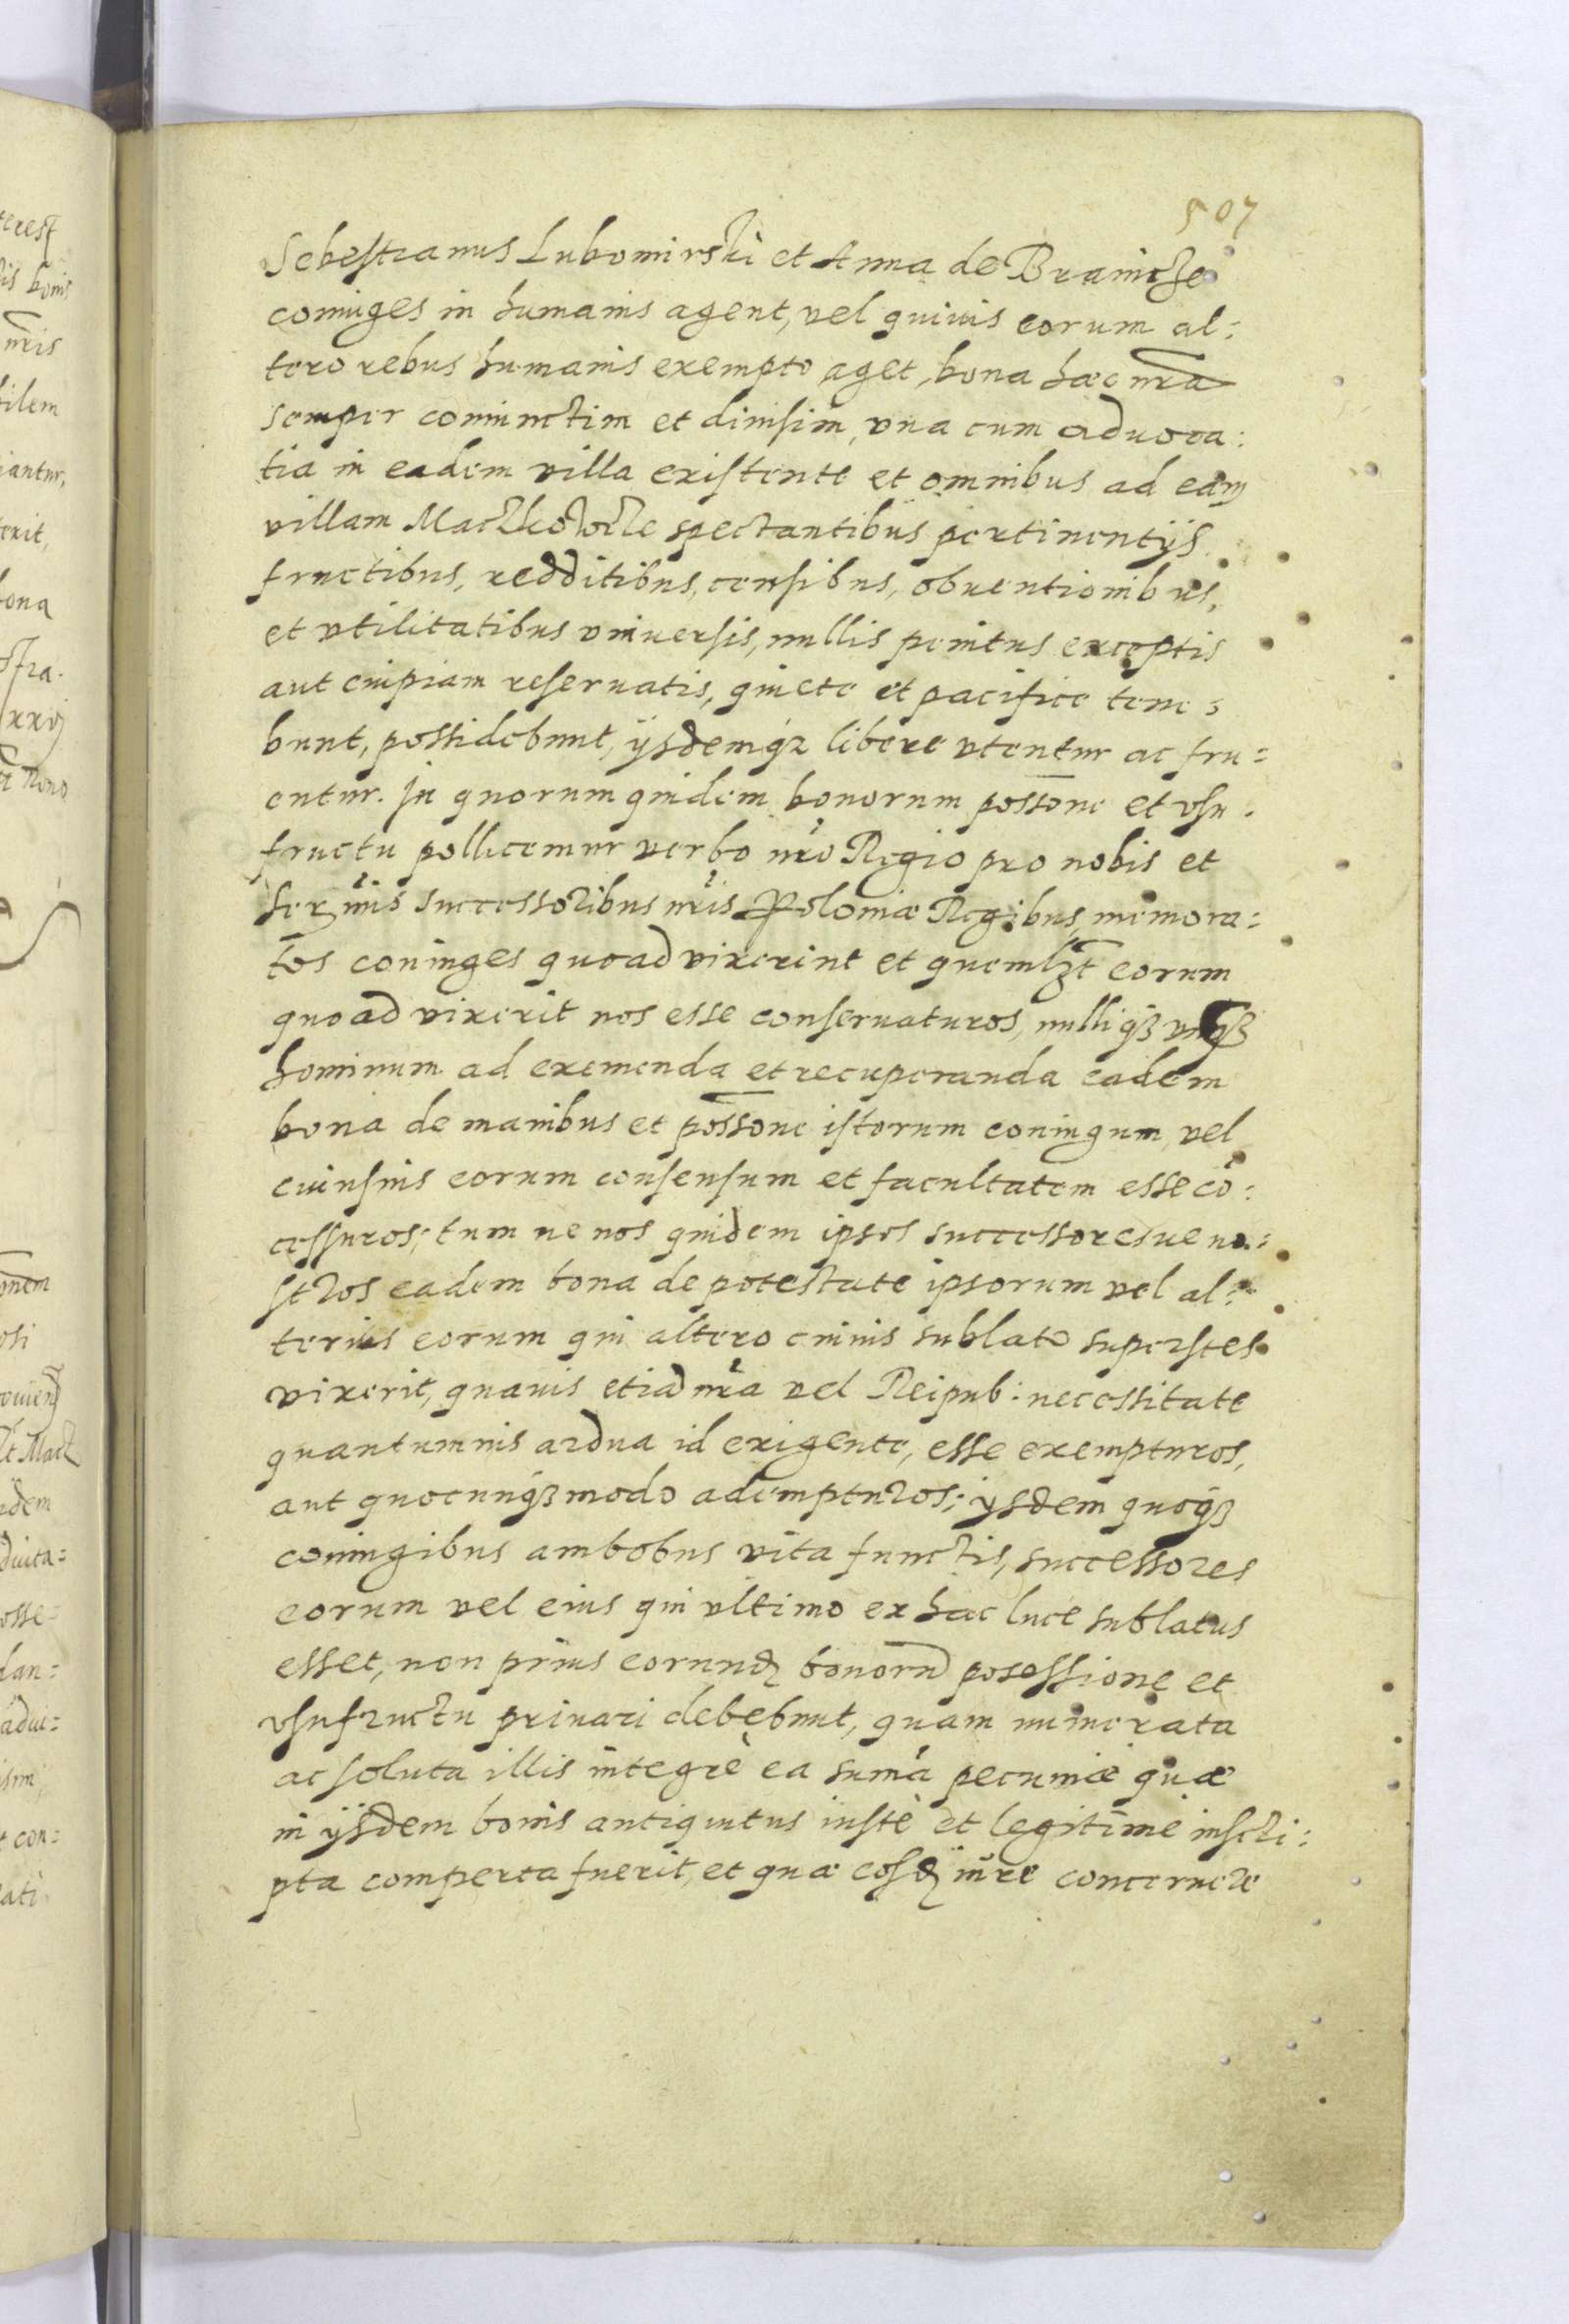 507
Sebestianus Lubomirski et Anna de Braniche
coniuges in humanis agent, vel quiuis eorum al:
tero rebus humanis exempto aget, bona hæc nr̃a
semper coniunctim et diuisim, vna cum aduoca:
tia in eadem villa existente et omnibus ad eam
villam spectantibus pertinentijs
fructibus, redditibus, censibus, obuentionibus,
et vtilitatibus vniuersis, nullis penitus exceptis
aut cuipiam reseruatis, quiete et pacifice tene:
bunt, possidebunt, ijsdemq₃ libere vtentur ac fru=
entur. In quorum quidem bonorum possone et vsu
fructu pollicemur verbo nr̃o Regio pro nobis et
Serm̃is successoribus nr̃is Poloniæ Regibus, memora:
tos coniuges quoad vixerint et quemlꝫt eorum
quoad vixerit nos esse conseruaturos, nulliqꝫ vnqꝫ
hominum ad exemenda et recuperanda eadem
bona de manibus et possone istorum coniugum, vel
cuiusuis eorum consensum et facultatem esse cō:
cessuros; tum ne nos quidem ipsos successoresue no:
stros eadem bona de potestate ipsorum vel al:
terius eorum qui altero e viuis sublato superstes
vixerit, quauis etiā nr̃a vel Reipub: necessitate
quantumuis ardua id exigente, esse exempturos,
aut quocunqꝫ modo adempturos; ijsdem quoqꝫ
coniugibus ambobus vita functis, successores
eorum vel eius qui vltimo ex hac luce sublatus
esset, non prius eorundꝫ bonorū posessione et
vsufructu priuari debebunt, quam numerata
ac soluta illis integrè ea suma pecuniæ quæ
in ijsdem bonis antiquitus iustè et legitimè inscri:
pta comperta fuerit, et quæ eosdꝫ iure concernere